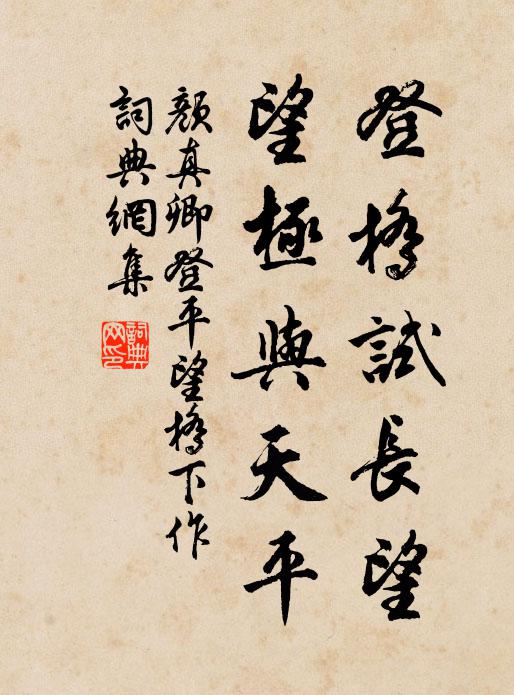 登橋試長望
望極與天平
顏真卿登平望橋下作
詞典網集
詞典網印